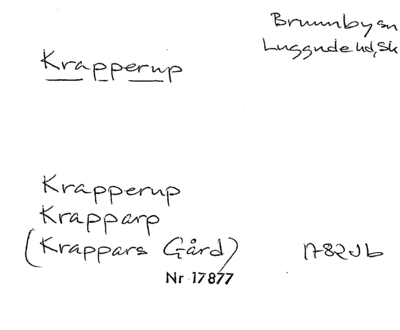 Brunnby sn
Luggude hd, Sk
Krapperup
Krapperup
Krapparp
(Krappars Gård)
Nr 17877